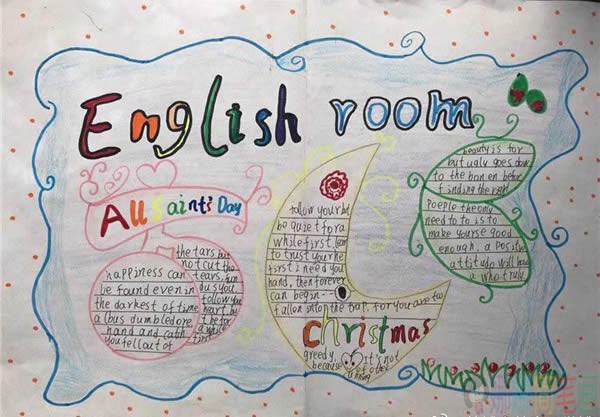 English room
All Saint's Day
happiness can
be found even in
the darkest of time
albus dumbledore
hand and catch
you fell out of
the tars but
not cut the
tears. fun
follow you
heart. but
first
follow your
be quiet for a
while first
to trust your he
first i need you
hand, then forever
can begin--
fallon into the trap. for you are too
christmas
greedy. it's not
because
beauty is for
but ugly goes down
to the bon en before
finding the right
Poeple theong
need to to is to
make yourse good
enough, a positive
attitude will have
u who truly